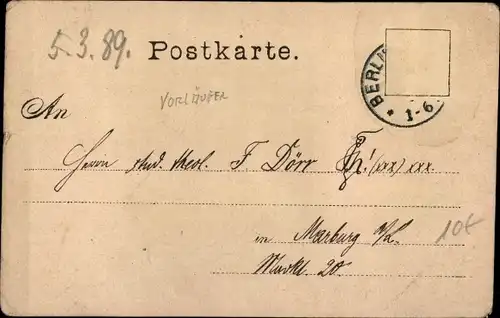 5.3.89.
Postkarte.
BERLIN
* 1-6
VORLÄUFER
An
Herrn stud. theol. F. Dörr (xxx) xxx.
in Marburg a/L.
10€
Markt 20.